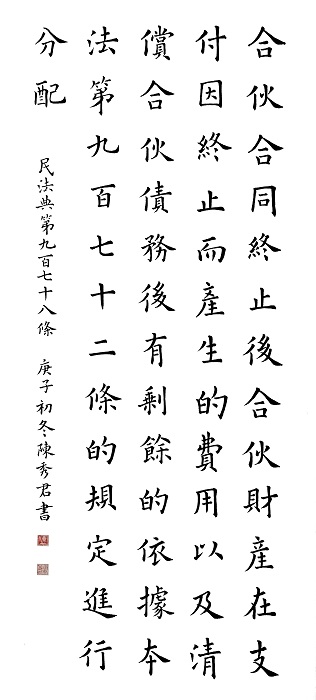 合伙合同終止後合伙財產在支
付因終止而產生的費用以及清
償合伙債務後有剩餘的依據本
法第九百七十二條的規定進行
分配
民法典第九百七十八條 庚子初冬陳秀君書